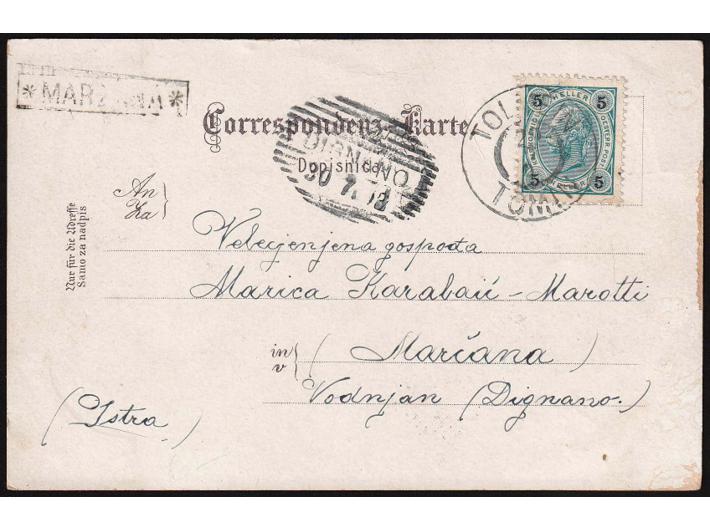 * MAR
Correspondenz-Karte
Dopisnica
DIGNANO
30 7
TOL
TOM
5 HELLER 5
5 5
An
Za
Nur für die Adresse
Samo za nadpis
Velecjenjena gospođa
Marica Karabaić-Marotti
in
v
(Marčana)
Vodnjan (Dignano.)
(Istra)